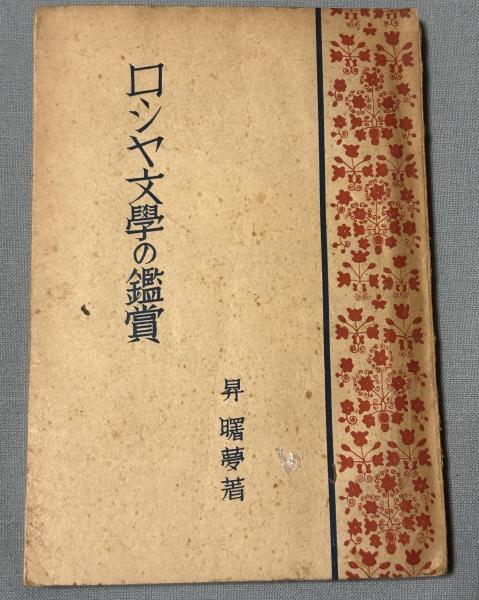 ロシヤ文學の鑑賞
昇曙夢著